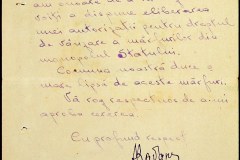 a dispune eliberarea
unei autorizații pentru dreptul
de vânzare a mărfurilor din
monopolul Statului.
Comuna noastră duce o
mare lipsă de aceste mărfuri.
Vă rog respectuos de a-mi
aproba cererea.
Cu profund respect